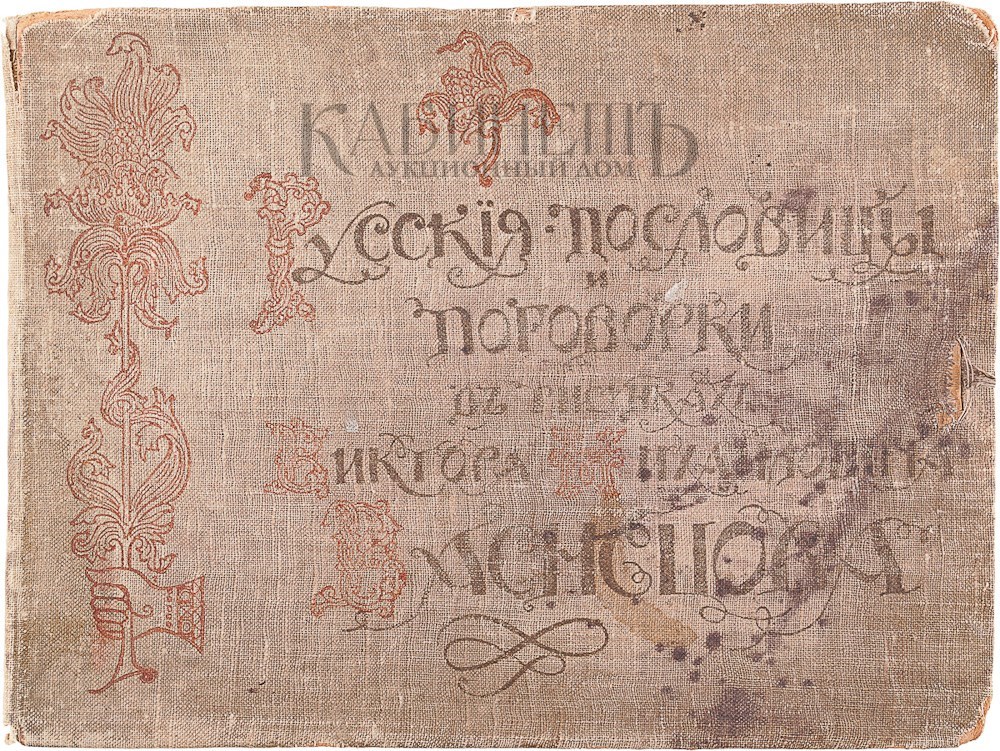 КАБИНЕТЪ
АУКЦИОННЫЙ ДОМ
Русскія : пословицы
и
поговорки
въ рисункахъ
Виктора Михайловича
Васнецова